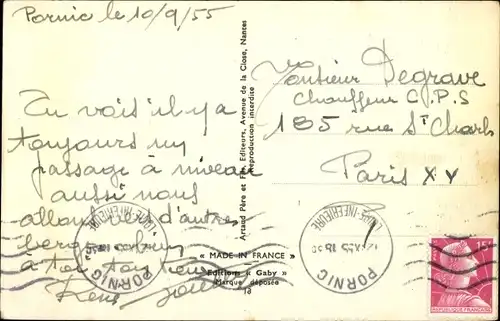 Pornic le 10/9/55
Tu vois il y a
toujours un
passage à niveau
aussi nous
allons d'autres
à toi
René
Artaud Père et Fils, Editeurs, Avenue de la Close, Nantes
Reproduction interdite
« MADE IN FRANCE »
Editions « Gaby »
Marque déposée
18
Monsieur Degrave
Chauffeur C.P.S
185 rue St Charles
Paris XV
PORNIC
LOIRE-INFERIEURE
PORNIC
LOIRE-INFERIEURE
15F
REPUBLIQUE FRANCAISE